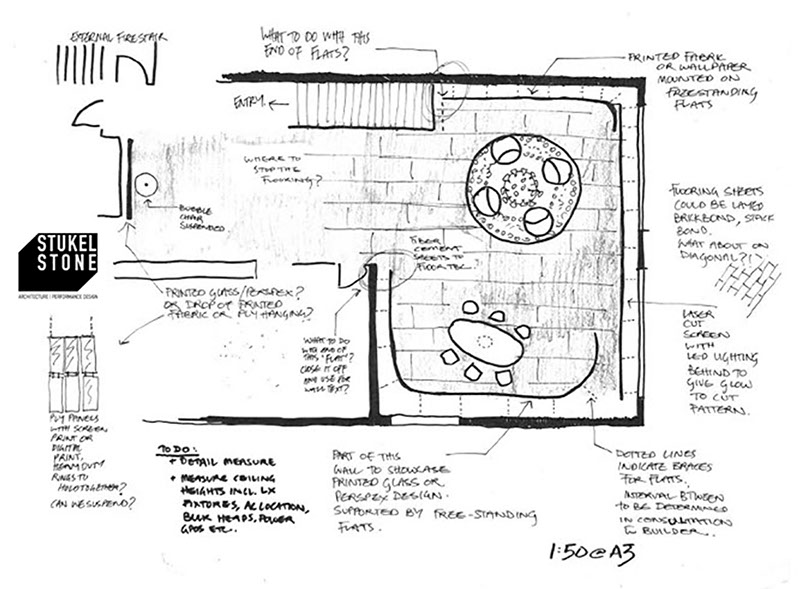 EXTERNAL FIRESTAIR
WHAT TO DO WITH THIS
END OF FLATS?
PRINTED FABRIC
OR WALLPAPER
MOUNTED ON
FREESTANDING
FLATS
ENTRY
WHERE TO
STOP THE
FLOORING?
BUBBLE
CHAIR
SUSPENDED
FLOORING SHEETS
COULD BE LAYED
BRICKBOND, STACK
BOND.
WHAT ABOUT ON
DIAGONAL?!
STUKEL
STONE
ARCHITECTURE | PERFORMANCE DESIGN
FIBER
CEMENT
SHEETS TO
FLOOR TBC.
PRINTED GLASS/PERSPEX?
OR DROP OF PRINTED
FABRIC OR PLY HANGING?
LASER
CUT
SCREEN
WITH
LED LIGHTING
BEHIND TO
GIVE GLOW
TO CUT
PATTERN.
WHAT TO DO
WITH END OF
THIS 'FLAT'?
CLOSE IT OFF
AND USE FOR
WALL TEXT?
PLY PANELS
WITH SCREEN
PRINT OR
DIGITAL
PRINT.
HEAVY DUTY
RINGS TO
HOLD TOGETHER?
CAN WE SUSPEND?
TO DO:
+ DETAIL MEASURE
+ MEASURE CEILING
HEIGHTS INCL. LX
FIXTURES, AC LOCATION,
BULK HEADS, POWER
GPOS ETC.
PART OF THIS
WALL TO SHOWCASE
PRINTED GLASS OR
PERSPEX DESIGN.
SUPPORTED BY FREE-STANDING
FLATS.
DOTTED LINES
INDICATE BRACES
FOR FLATS.
INTERVAL BTWEEN
TO BE DETERMINED
IN CONSULTATION
BUILDER.
1:50@A3